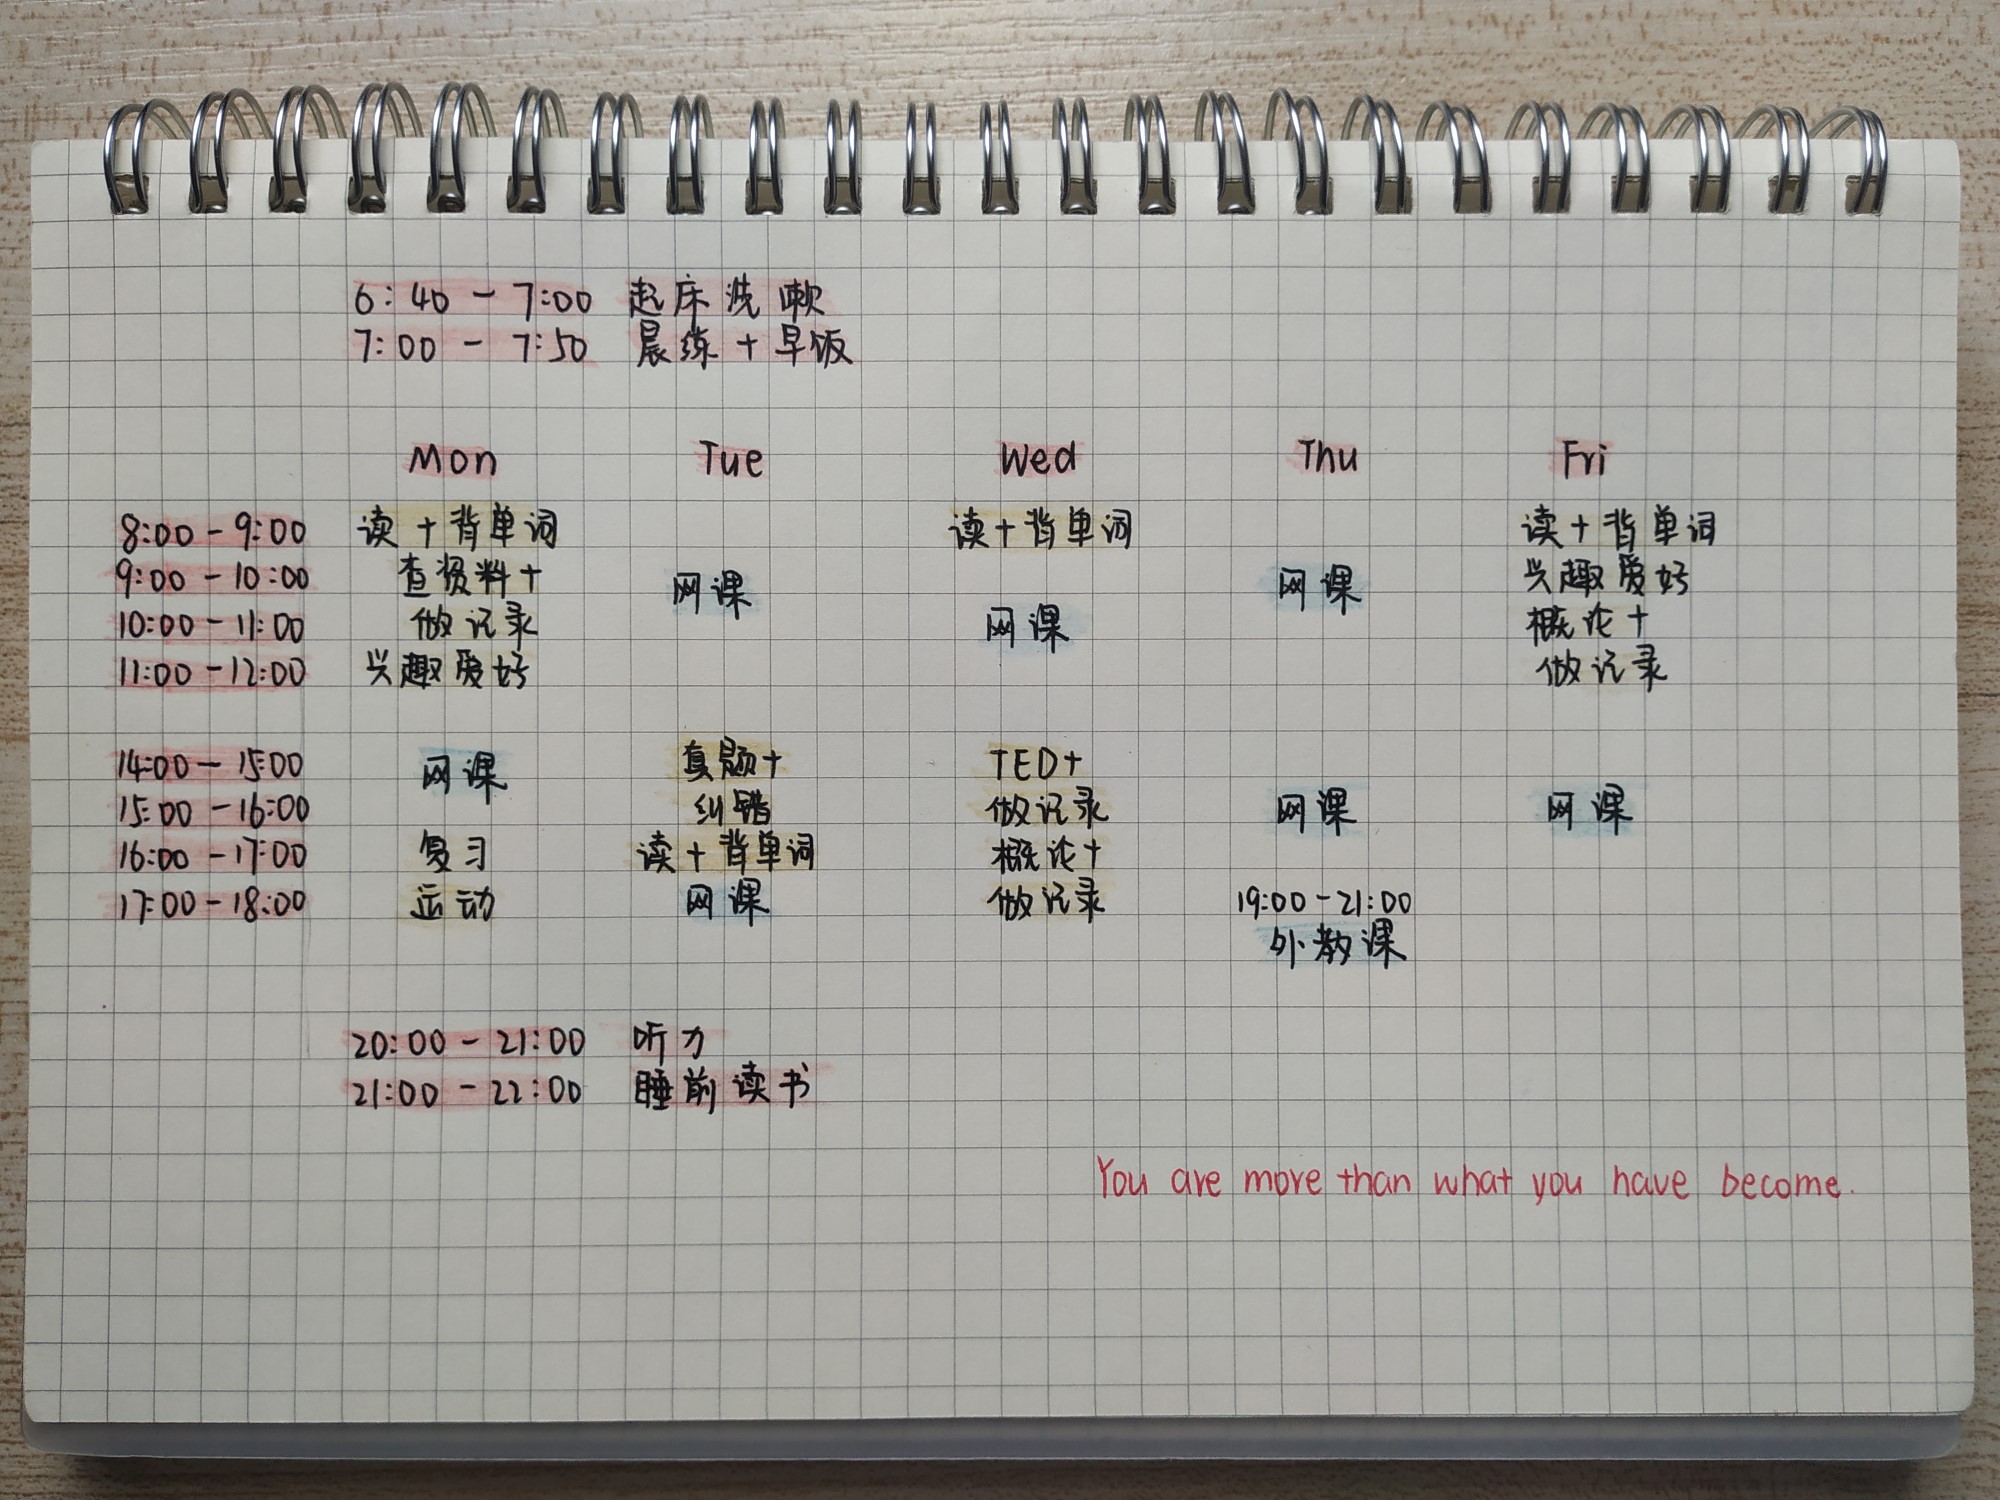 6:40 - 7:00 起床洗漱
7:00 - 7:50 晨练 + 早饭
Mon Tue Wed Thu Fri
8:00 - 9:00 读 + 背单词 读 + 背单词 读 + 背单词
9:00 - 10:00 查资料 + 网课 网课 兴趣爱好
10:00 - 11:00 做记录 网课 概论 +
11:00 - 12:00 兴趣爱好 做记录
14:00 - 15:00 网课 真题 + TED +
15:00 - 16:00 纠错 做记录 网课 网课
16:00 - 17:00 复习 读 + 背单词 概论 +
17:00 - 18:00 运动 网课 做记录 19:00 - 21:00
外教课
20:00 - 21:00 听力
21:00 - 22:00 睡前读书
You are more than what you have become.